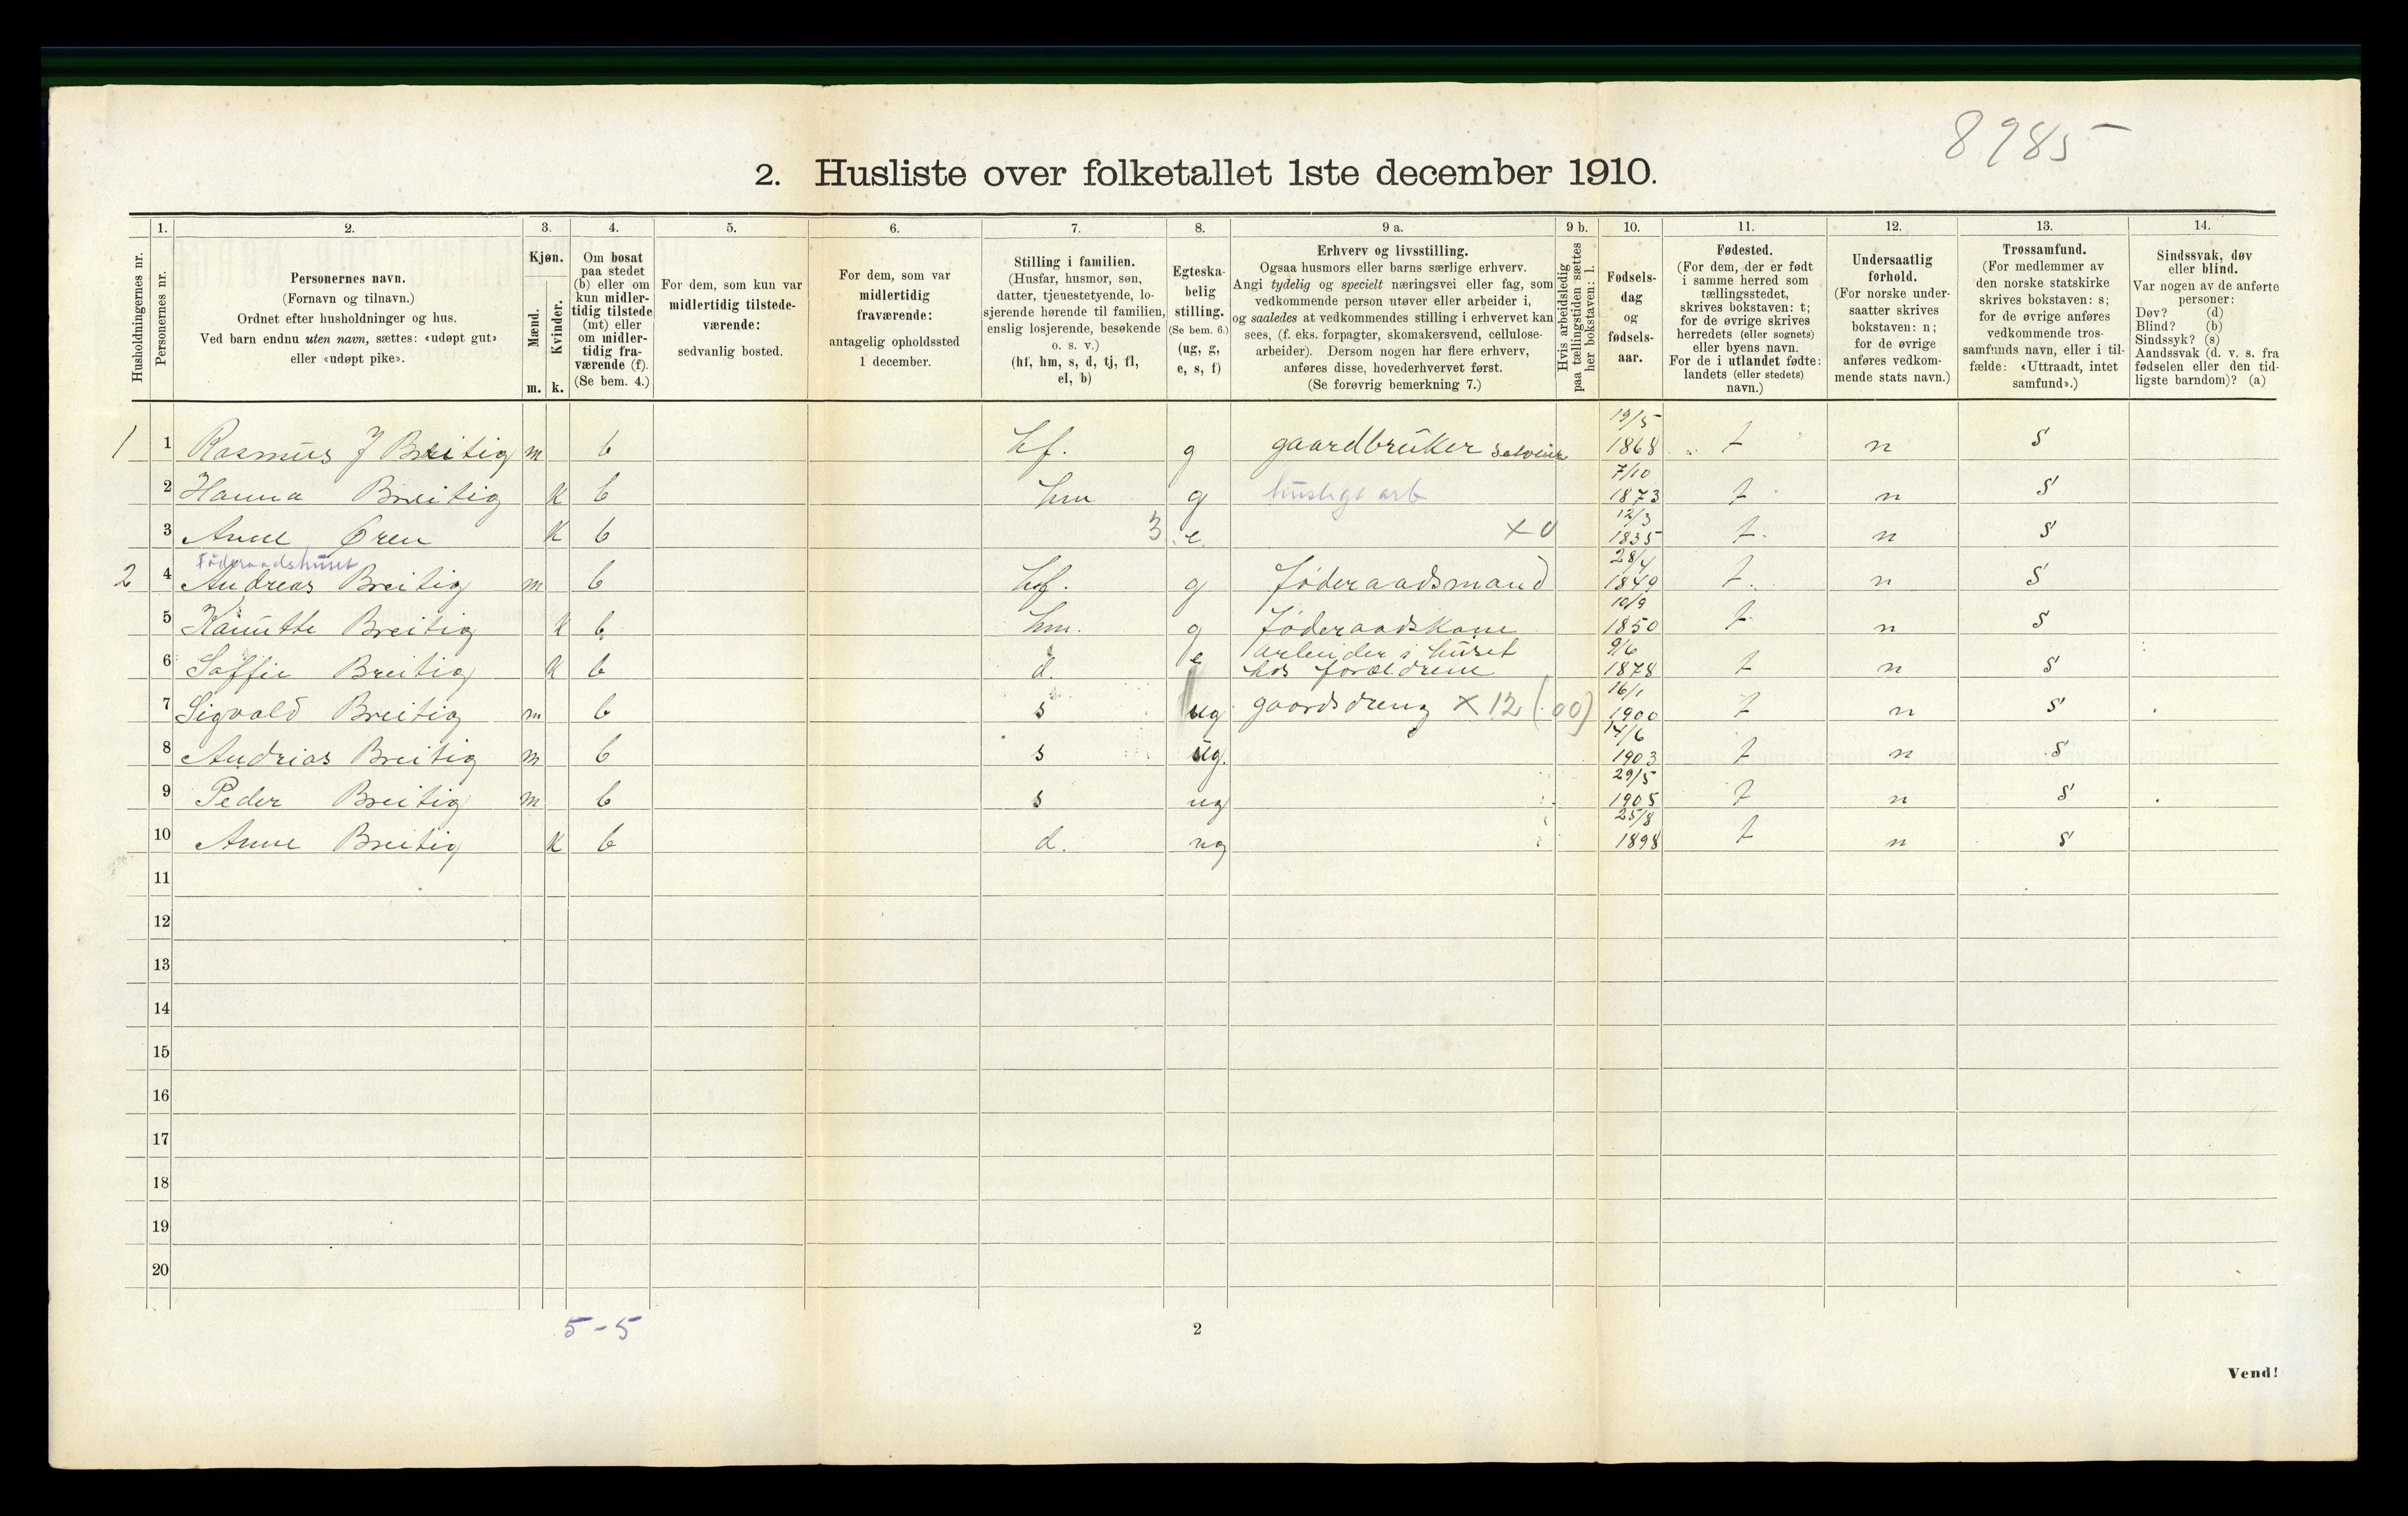 8985
2. Husliste over folketallet 1ste december 1910.
Husholdningernes nr.
1.
Personernes nr.
2.
Personernes navn.
(Fornavn og tilnavn.)
Ordnet efter husholdninger og hus.
Ved barn endnu uten navn, sættes: «udøpt gut»
eller «udøpt pike».
3.
Kjøn.
Mænd.
Kvinder.
m. k.
4.
Om bosat
paa stedet
(b) eller om
kun midler-
tidig tilstede
(mt) eller
om midler-
tidig fra-
værende (f).
(Se bem. 4.)
5.
For dem, som kun var
midlertidig tilstede-
værende:
sedvanlig bosted.
6.
For dem, som var
midlertidig
fraværende:
antagelig opholdssted
1 december.
7.
Stilling i familien.
(Husfar, husmor, søn,
datter, tjenestetyende, lo-
sjerende hørende til familien,
enslig losjerende, besøkende
o. s. v.)
(hf, hm, s, d, tj, fl,
el, b)
8.
Egteska-
belig
stilling.
(Se bem. 6.)
(ug, g,
e, s, f)
9 a.
Erhverv og livsstilling.
Ogsaa husmors eller barns særlige erhverv.
Angi tydelig og specielt næringsvei eller fag, som
vedkommende person utøver eller arbeider i,
og saaledes at vedkommendes stilling i erhvervet kan
sees, (f. eks. forpagter, skomakersvend, cellulose-
arbeider). Dersom nogen har flere erhverv,
anføres disse, hovederhvervet først.
(Se forøvrig bemerkning 7.)
9 b.
Hvis arbeidsledig
paa tællingstiden sættes
her bokstaven: l.
10.
Fødsels-
dag
og
fødsels-
aar.
11.
Fødested.
(For dem, der er født
i samme herred som
tællingsstedet,
skrives bokstaven: t;
for de øvrige skrives
herredets (eller sognets)
eller byens navn.
For de i utlandet fødte:
landets (eller stedets)
navn.)
12.
Undersaatlig
forhold.
(For norske under-
saatter skrives
bokstaven: n;
for de øvrige
anføres vedkom-
mende stats navn.)
13.
Trossamfund.
(For medlemmer av
den norske statskirke
skrives bokstaven: s;
for de øvrige anføres
vedkommende tros-
samfunds navn, eller i til-
fælde: «Uttraadt, intet
samfund».)
14.
Sindssvak, døv
eller blind.
Var nogen av de anførte
personer:
Døv? (d)
Blind? (b)
Sindssyk? (s)
Aandssvak (d. v. s. fra
fødselen eller den tid-
ligste barndom)? (a)
1 1 Rasmus J Breitig m b hf. g gaardbruker selveier 19/5 1868 t n s
2 Hanna Breitig k b hm g huslige arb 7/10 1873 t n s
3 Anne Øren k b 3 e x0 12/3 1835 t. n s
Föderaadshuset
2 4 Andreas Breitig m b hf. g föderaadsmand 28/4 1849 t. n s
5 Kanutte Breitig k b hm. g föderaadskone 10/9 1850 t n s
6 Saffie Breitig k b d. e arbeider i huset hos forældrene 9/6 1878 t n s
7 Sigvald Breitig m b s ug gaardsdreng x 12 (00) 16/1 1900 t n s
8 Andrias Breitig m b s ug. 14/6 1903 t n s
9 Peder Breitig m b s ug 29/5 1905 t n s
10 Anne Breitig k b d. ug 25/8 1898 t n s
11
12
13
14
15
16
17
18
19
20
5-5
2
Vend!